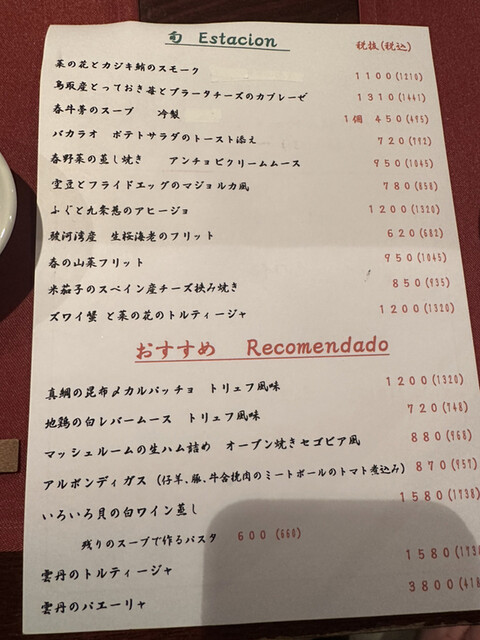 旬 Estacion 税抜(税込)
菜の花とカジキ鮪のスモーク 1100(1210)
鳥取産とっておき苺とブラータチーズのカプレーゼ 1310(1441)
春牛蒡のスープ 冷製 1個 450(495)
バカラオ ポテトサラダのトースト添え 720(792)
春野菜の蒸し焼き アンチョビクリームムース 950(1045)
空豆とフライドエッグのマジョルカ風 780(858)
ふぐと九条葱のアヒージョ 1200(1320)
駿河湾産 生桜海老のフリット 620(682)
春の山菜フリット 950(1045)
米茄子のスペイン産チーズ挟み焼き 850(935)
ズワイ蟹 と菜の花のトルティージャ 1200(1320)
おすすめ Recomendado
真鯛の昆布〆カルパッチョ トリュフ風味 1200(1320)
地鶏の白レバームース トリュフ風味 720(748)
マッシュルームの生ハム詰め オーブン焼きセゴビア風 880(968)
アルボンディガス (仔羊、豚、牛合挽肉のミートボールのトマト煮込み) 870(957)
いろいろ貝の白ワイン蒸し 1580(1738)
残りのスープで作るパスタ 600(660)
雲丹のトルティージャ 1580
雲丹のパエーリャ 3800